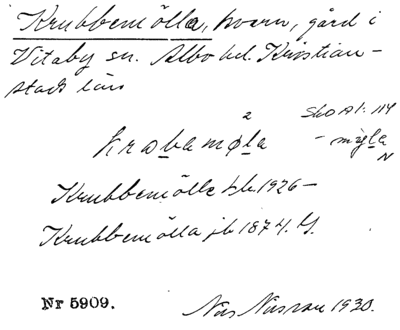 Krubbemölla, kvarn, gård i
Vitaby sn. Albo hd. Kristian-
stads län
2 Sko Al: 114
krabamøla - møgla
N
Krubbemölle hk 1926 -
Krubbemölla jb 1874. G.
Nr 5909. Nils 1930.